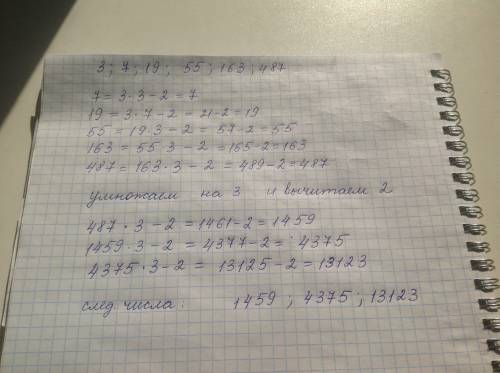 3; 7; 19; 55; 163; 487
7 = 3·3-2 = 7
19 = 3·7-2 = 21-2 = 19
55 = 19·3-2 = 57-2 = 55
163 = 55·3-2 = 165-2 = 163
487 = 163·3-2 = 489-2 = 487
умножаем на 3 и вычитаем 2
487·3-2 = 1461-2 = 1459
1459·3-2 = 4377-2 = 4375
4375·3-2 = 13125-2 = 13123
след. числа: 1459; 4375; 13123